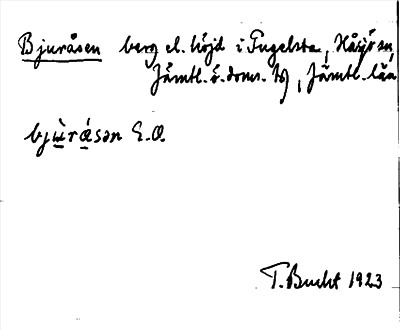 Bjuråsen berg el. höjd i Fugelsta, Håsjö sn,
Jämtl. ö. doms. tg, Jämtl. län
bjùrásən E.O.
T. Bucht 1923